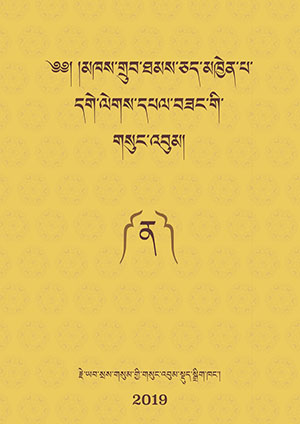 ༄༅། །མཁས་གྲུབ་ཐམས་ཅད་མཁྱེན་པ་
དགེ་ལེགས་དཔལ་བཟང་གི་
གསུང་འབུམ།
ན
རྗེ་ཡབ་སྲས་གསུམ་གྱི་གསུང་འབུམ་སྡུད་སྒྲིག་ཁང་།
2019